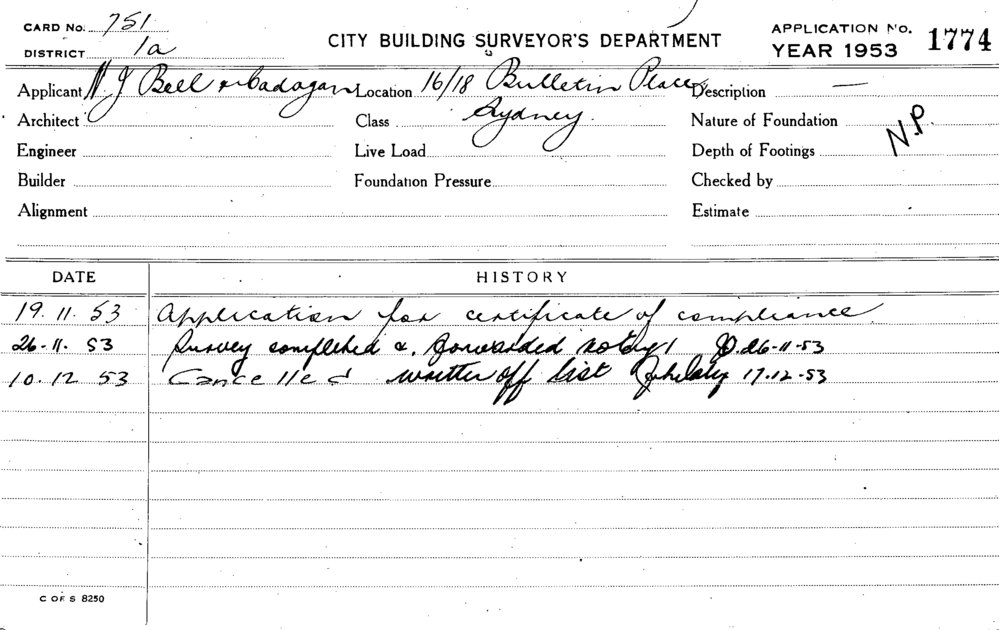 CARD No. 751
DISTRICT 1a
CITY BUILDING SURVEYOR'S DEPARTMENT
APPLICATION No. 1774
YEAR 1953
Applicant N. J Bell & Cadogan Location 16/18 Bulletin Place Description —
Architect Class Sydney. Nature of Foundation N.P.
Engineer Live Load Depth of Footings
Builder Foundation Pressure Checked by
Alignment Estimate
DATE HISTORY
19. 11. 53 Application for certificate of compliance.
26-11. 53 Survey completed & forwarded 26-11-53
10. 12 53 Cancelled written off list 17.12.53
C OF S 8250